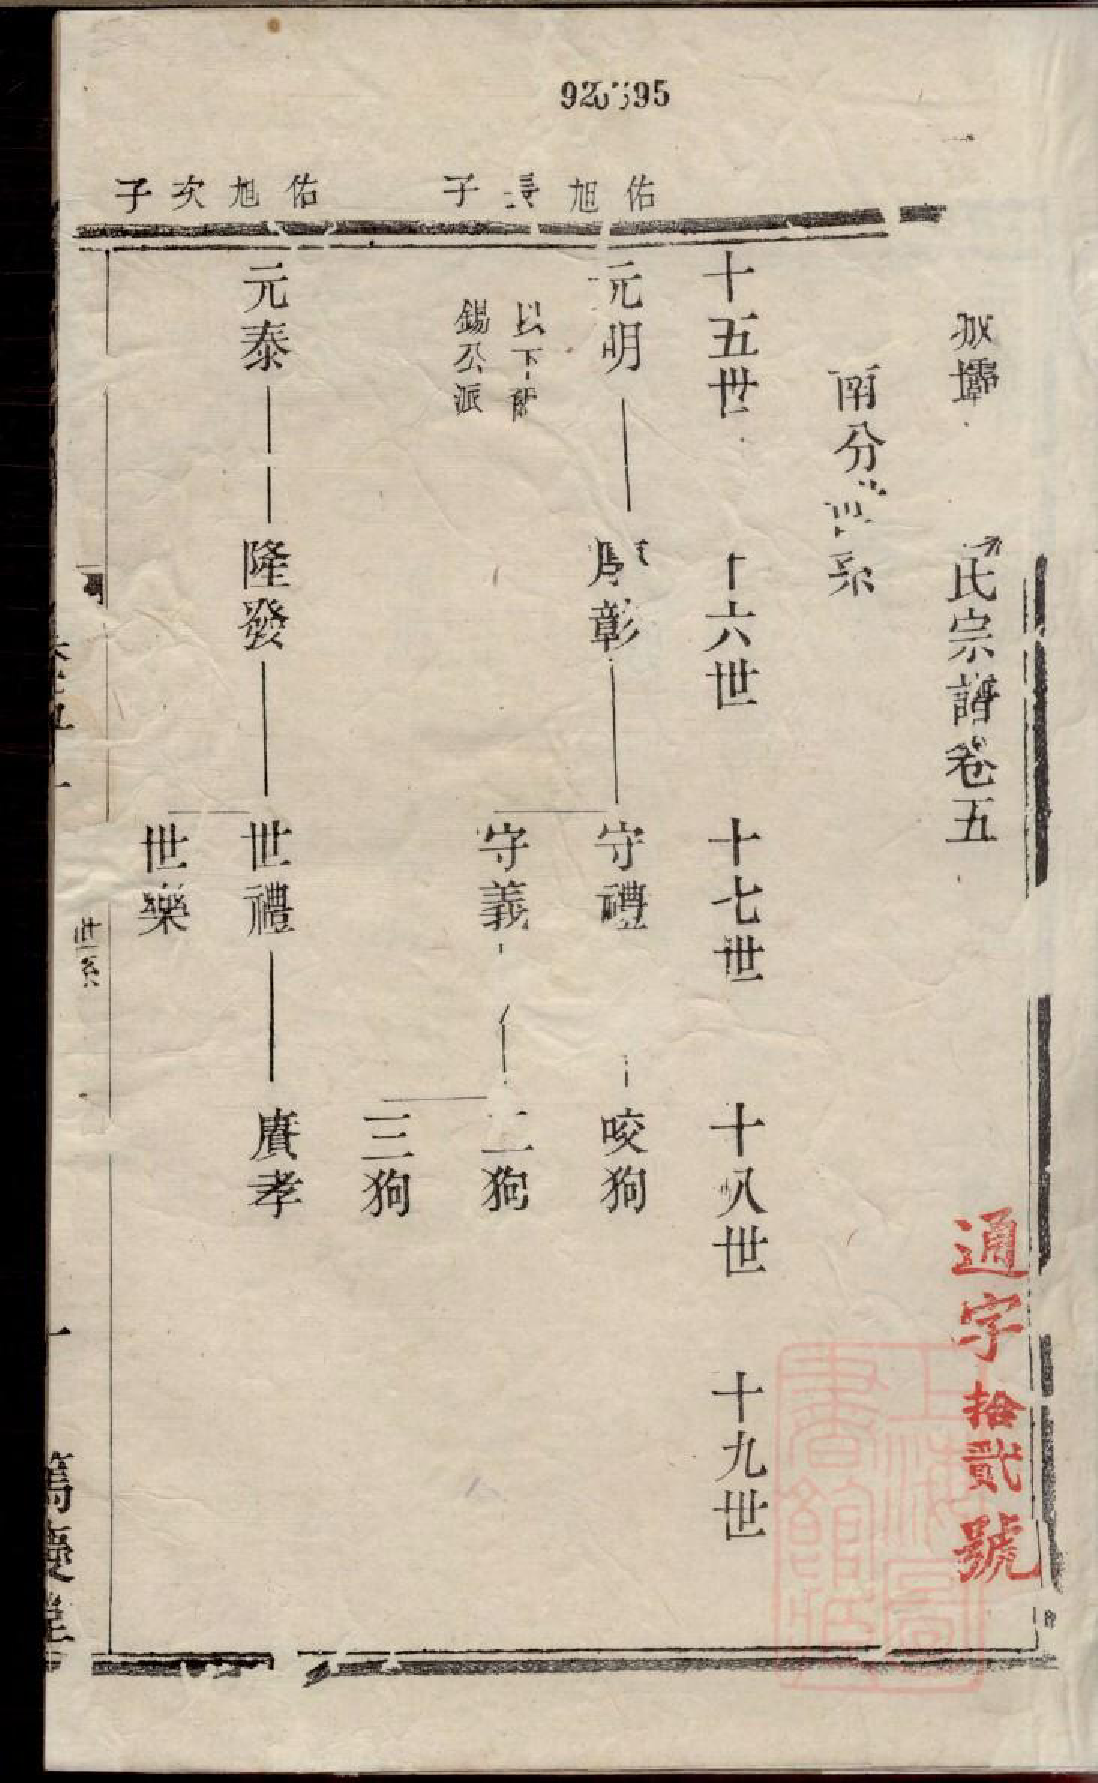 氏宗譜卷五
南分世系
十五世 十六世 十七世 十八世 十九世
佑旭長子
元明 彰 守禮 咬狗
以下
錫公派
守義 二狗
三狗
佑旭次子
元泰 隆發 世禮 賡孝
世樂
世系
萬慶堂
通字拾貳號
上海圖書館藏